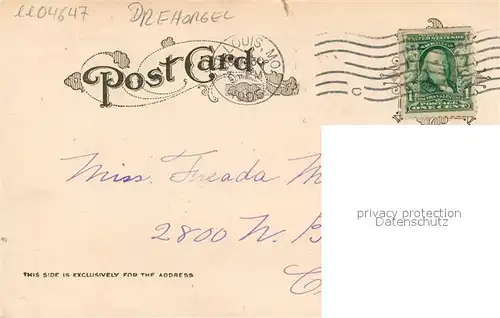 LL04647 DREHORGEL
LOUIS, MO.
Post Card
POSTAGE
ONE CENT
Miss. Freada M
2800 N. B
privacy protection
Datenschutz
THIS SIDE IS EXCLUSIVELY FOR THE ADDRESS.
C